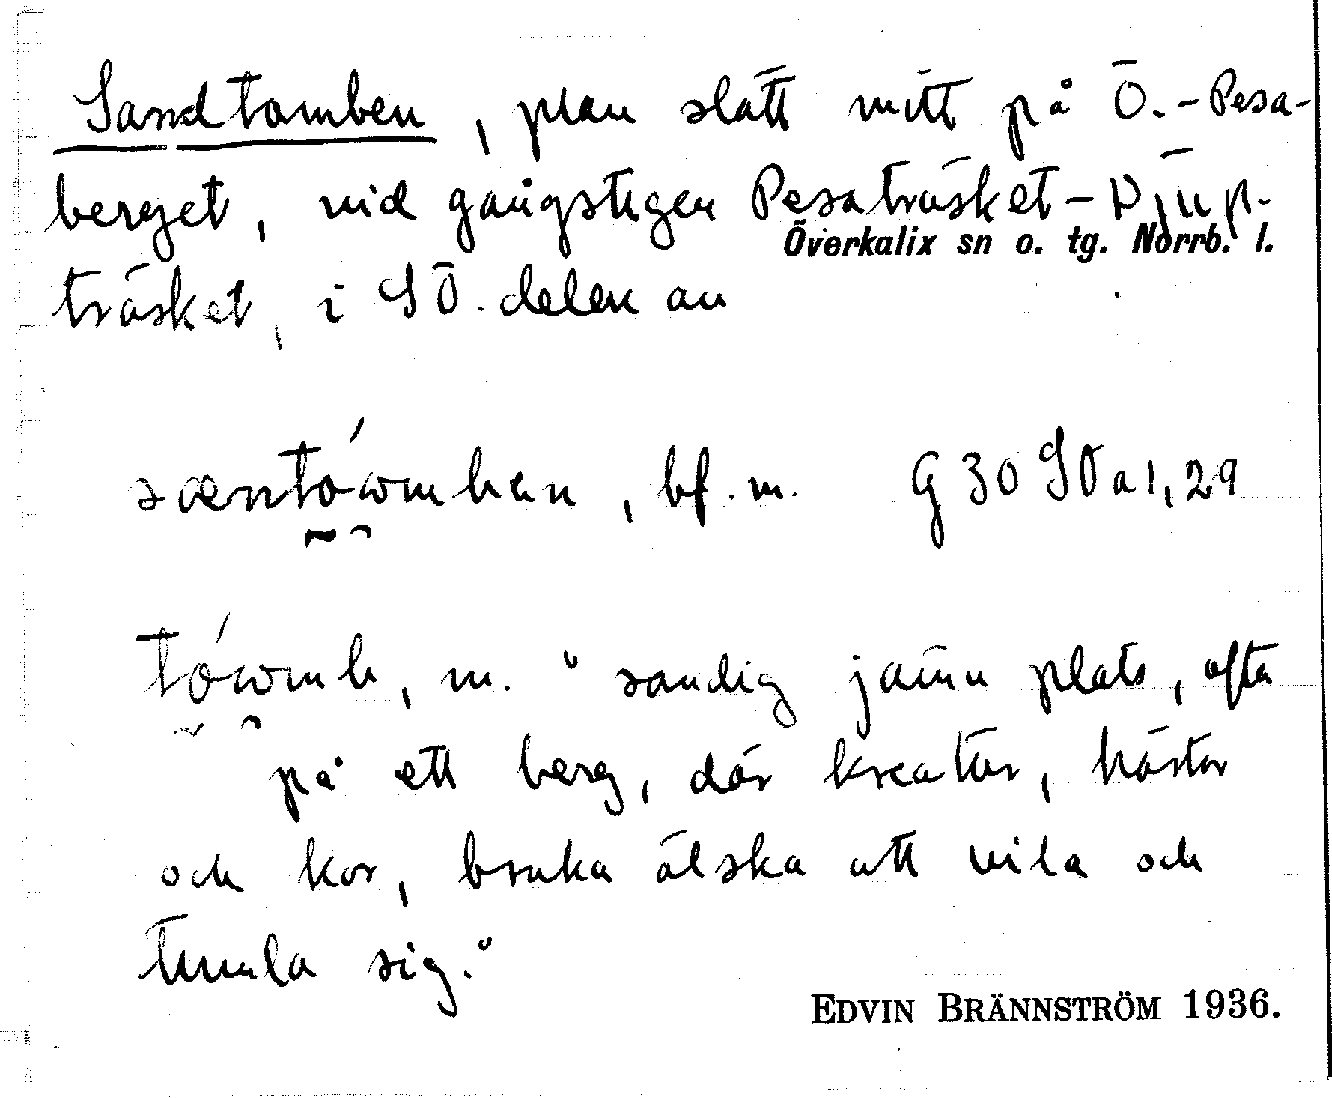 Sandtomben, plan slätt mitt på Ö.-Pesa-
berget, vid gångstigen Pesaträsket-Djup-
Överkalix sn o. tg. Norrb. l.
träsket, i SÖ. delen av
bf. m. G 30 SO a 1, 29
m. "sandig jämn plats, ofta
på ett berg, där kreatur, hästar
och kor, bruka älska att vila och
tumla sig."
EDVIN BRÄNNSTRÖM 1936.